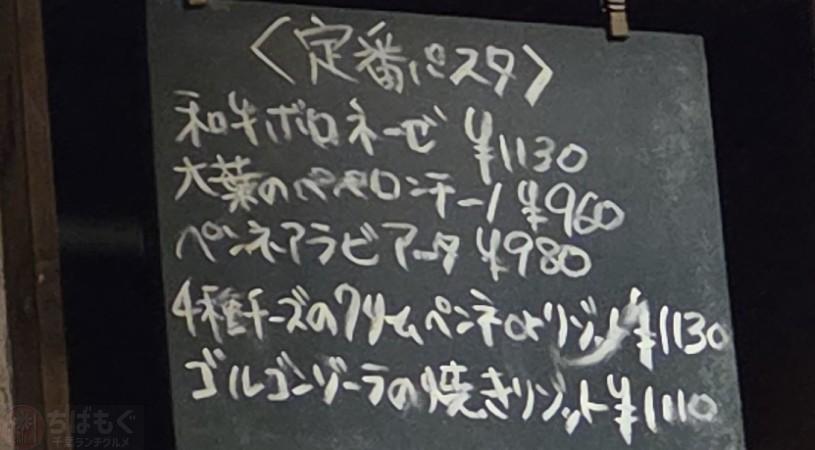 〈定番パスタ〉
和牛ボロネーゼ ¥1130
大葉のペペロンチーノ ¥960
ペンネアラビアータ ¥980
4種チーズのクリームペンネorリゾット ¥1130
ゴルゴンゾーラの焼きリゾット ¥1110
ちばもぐ
千葉ランチグルメ